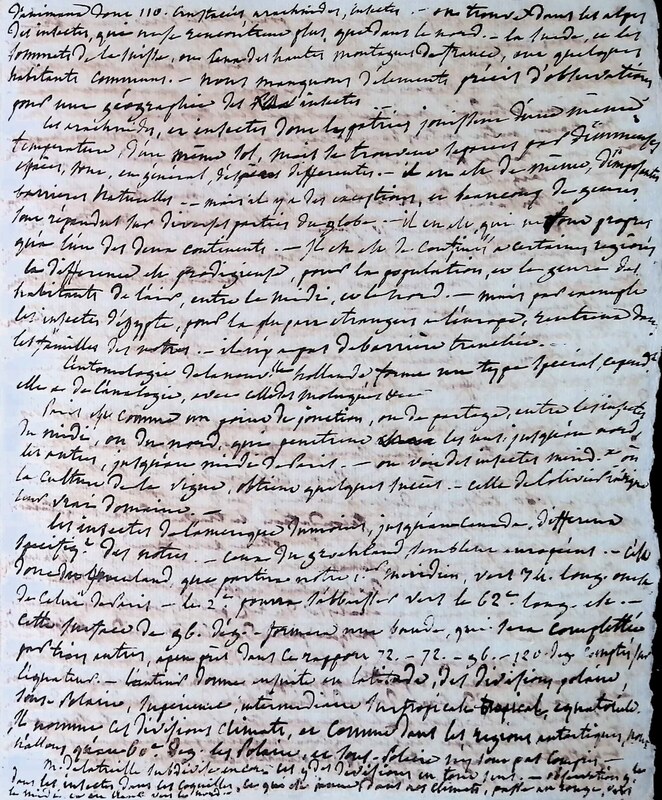 donne 110. Crustacés, arachnides, insectes. — on trouve dans les alpes
des insectes, que ne se rencontrent plus, que dans le nord. — la suede, et les
sommets de la suisse, ou ceux des hautes montagnes de france, ont quelques
habitants communs. — nous manquons d'elements précis d'observations
pour une géographie des insectes
les arachnides, et insectes dont les patries jouissent d'une même
temperature d'un même sol, mais se trouvent separées par d'immenses
espaces, sont, en general, d'especes differentes. — il en est de même, d'imposantes
barrieres naturelles. — mais il y a des exceptions, et beaucoup de genres,
sont repandus sur diverses parties du globe. — il en est, qui ne sont propres
qu'à l'un des deux continents. — Il en est de confinés, a certaines regions
la difference est prodigieuse, pour la population, et le genre des
habitants de l'air, entre le midi, et le nord. — mais par exemple
les insectes d'égypte, pour la plupart etrangers a l'europe, rentrent dans
les familles des notres. — il n'y a pas de barriere tranchée. —
l'entomologie de la nouv.lle hollande forme un type special, cepend.t
elle a de l'analogie, avec celle des moluques
Paris est comme un point de jonction, ou de partage, entre les insectes
du midi, ou du nord, que penetrent les uns, jusqu'au nord,
les autres, jusqu'au midi de Paris. — on voit des insectes merid.x où
la culture de la vigne, obtient quelques succès. — celle de l'olivier
leur vrai domaine. —
les insectes de l'amerique du moins, jusqu'au canada, different
specifiq.t des notres. — ceux du groenland semblent européens. — C'est
donc du groenland que partira notre 1.er meridien, vers 34. long. ouest
de celui de Paris. — le 2.e pourra s'abbaisser vers le 62.e long. est —
cette surface de 96. deg. — formera une bande, qui sera complettée
par trois autres, a peu près dans ce rapport 72. — 72. — 96. — 120. deg. comptés sur
l'équateur. — l'auteur donne ensuite en latitude, des divisions polaire,
sous-Polaire, superieure, intermediaire surtropicale tropical, equatoriale.
Il nomme ces divisions climats, et comme dans les regions antarctiques, nous
n'allons qu'au 60.e deg. les Polaire, et sous-Polaire n'y sont pas compris. —
M. de latreille subdivise encore ces divisions en
dans les insectes